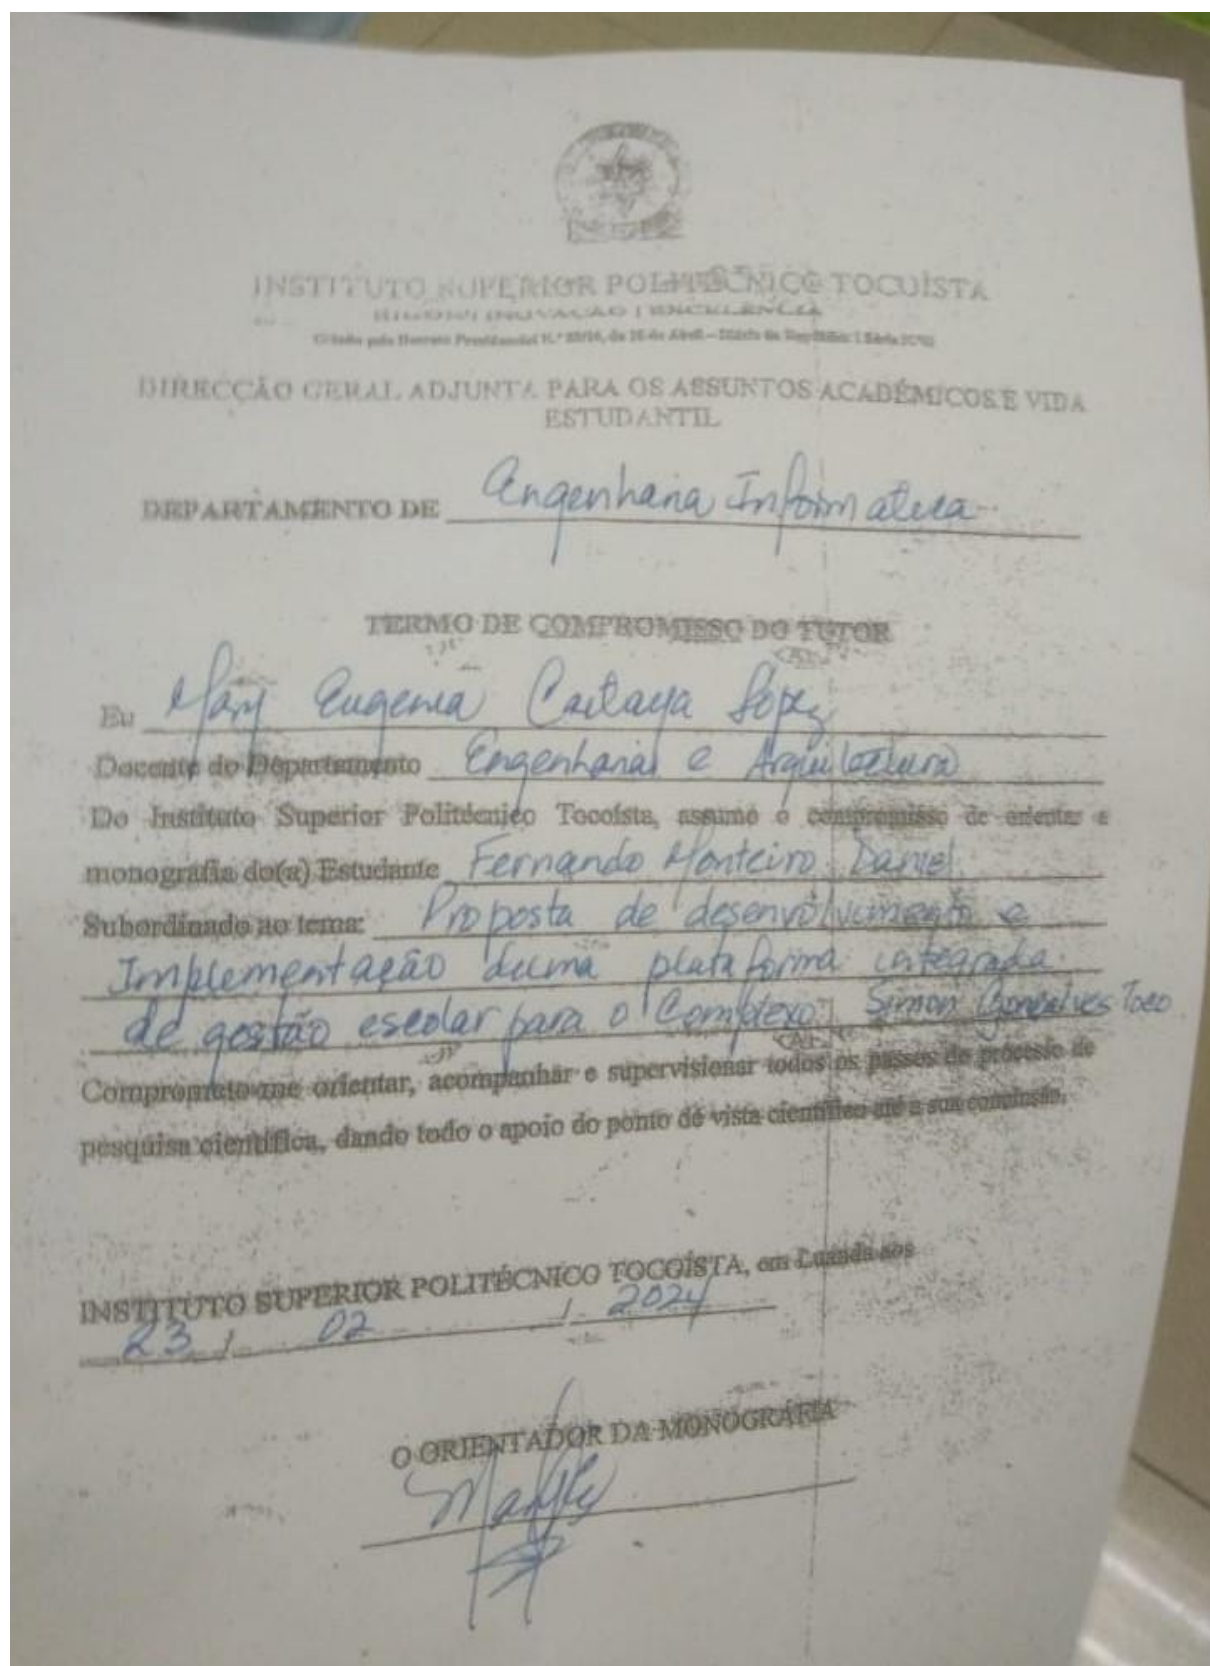 INSTITUTO SUPERIOR POLITÉCNICO TOCOÍSTA
RIGOR | INOVAÇÃO | EXCELÊNCIA
Criado pelo Decreto Presidencial N.º de de Abril – Diário da República I Série
DIRECÇÃO GERAL ADJUNTA PARA OS ASSUNTOS ACADÉMICOS E VIDA
ESTUDANTIL
DEPARTAMENTO DE Engenharia Informatica
TERMO DE COMPROMISSO DO TUTOR
Eu Mary Eugenia Lopez
Docente do Departamento Engenharias e Arquitectura
Do Instituto Superior Politécnico Tocoísta, assumo o compromisso de orientar a
monografia do(a) Estudante Fernando Monteiro Daniel
Subordinado ao tema: Proposta de desenvolvimento e
Implementação duma plataforma integrada
de gestão escolar para o Complexo Simon Gonçalves Toco
Comprometo-me orientar, acompanhar e supervisionar todos os passos do processo de
pesquisa científica, dando todo o apoio do ponto de vista científico até a sua conclusão.
INSTITUTO SUPERIOR POLITÉCNICO TOCOÍSTA, em Luanda aos
23 / 02 / 2024
O ORIENTADOR DA MONOGRAFIA